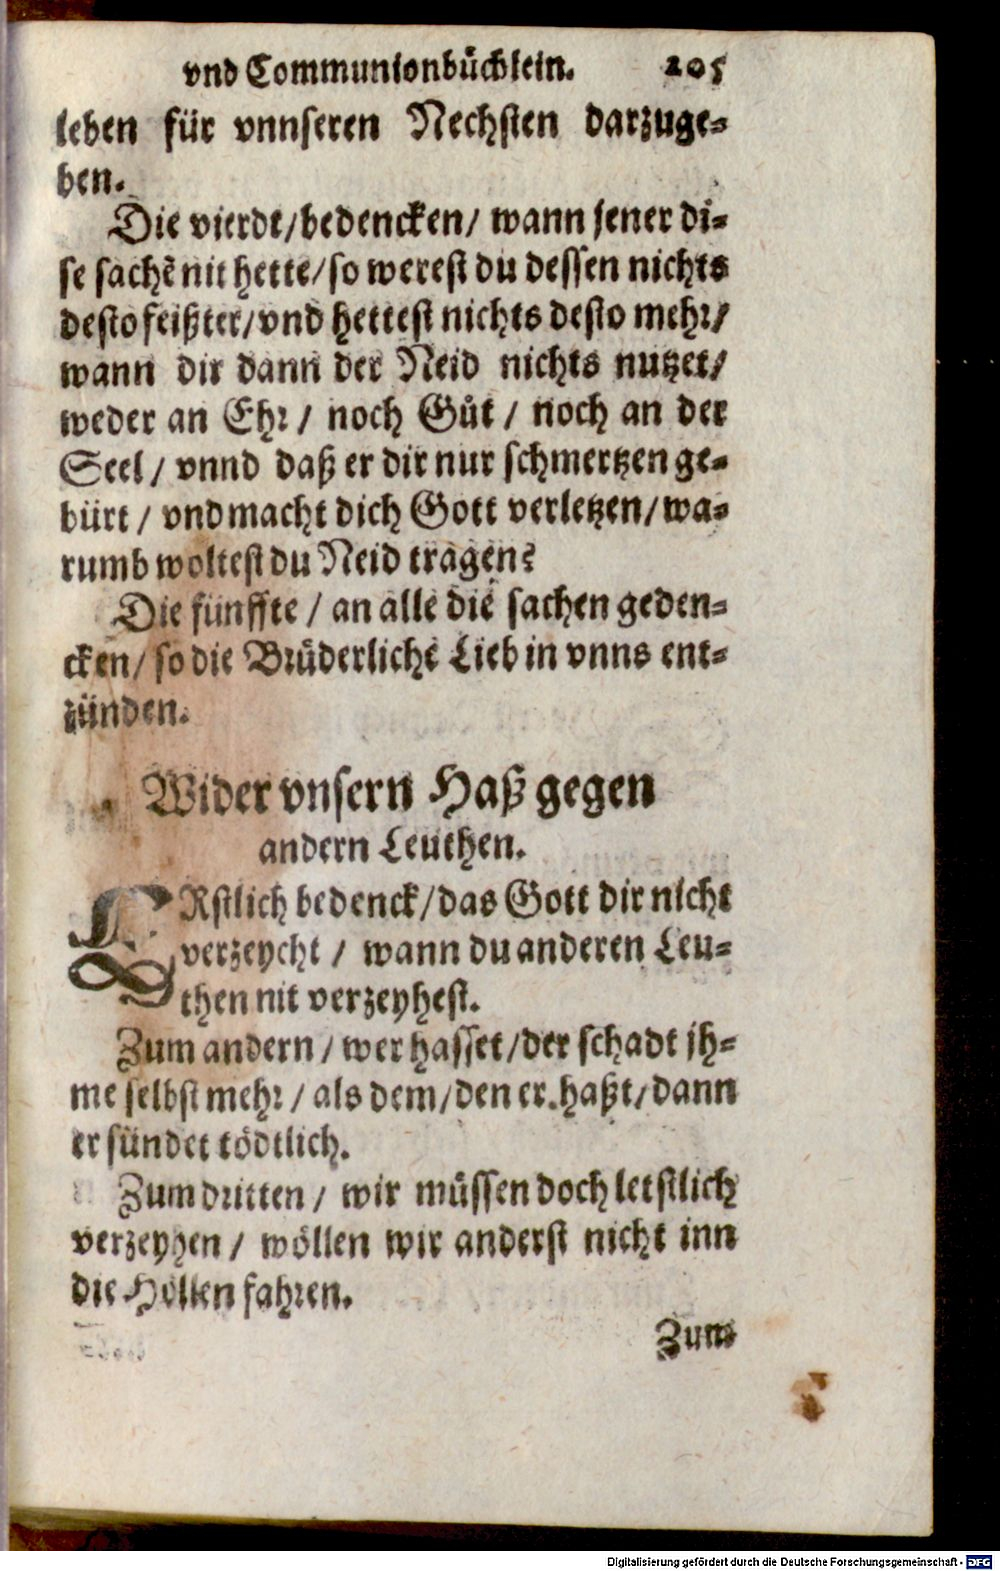 vnd Communionbüchlein. 205
leben für vnnseren Nechsten darzuge-
ben.
Die vierdt/ bedencken/ wann jener di-
se sachē nit hette/ so werest du dessen nichts
desto feißter/ vnd hettest nichts desto mehr/
wann dir dann der Neid nichts nutzet/
weder an Ehr/ noch Gůt/ noch an der
Seel/ vnnd daß er dir nur schmertzen ge-
bürt/ vnd macht dich Gott verletzen/ wa-
rumb woltest du Neid tragen?
Die fünffte/ an alle die sachen geden-
cken/ so die Brüderliche Lieb in vnns ent-
zünden.
Wider vnsern Haß gegen
andern Leuthen.
ERstlich bedenck/ das Gott dir nicht
verzeycht/ wann du anderen Leu-
then nit verzeyhest.
Zum andern/ wer hasset/ der schadt jh-
me selbst mehr/ als dem/ den er haßt/ dann
er sündet tödtlich.
Zum dritten/ wir müssen doch letstlich
verzeyhen/ wöllen wir anderst nicht inn
die Höllen fahren.
Zum
Digitalisierung gefördert durch die Deutsche Forschungsgemeinschaft - DFG